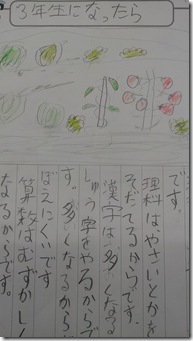 3年生になったら
です。
理科はやさいとかを
そだてるからです。
漢字は多くなる
しゅう字をやるからで
す。多くなるから
ぼえにくいです
算数はむずかしく
なるからです。